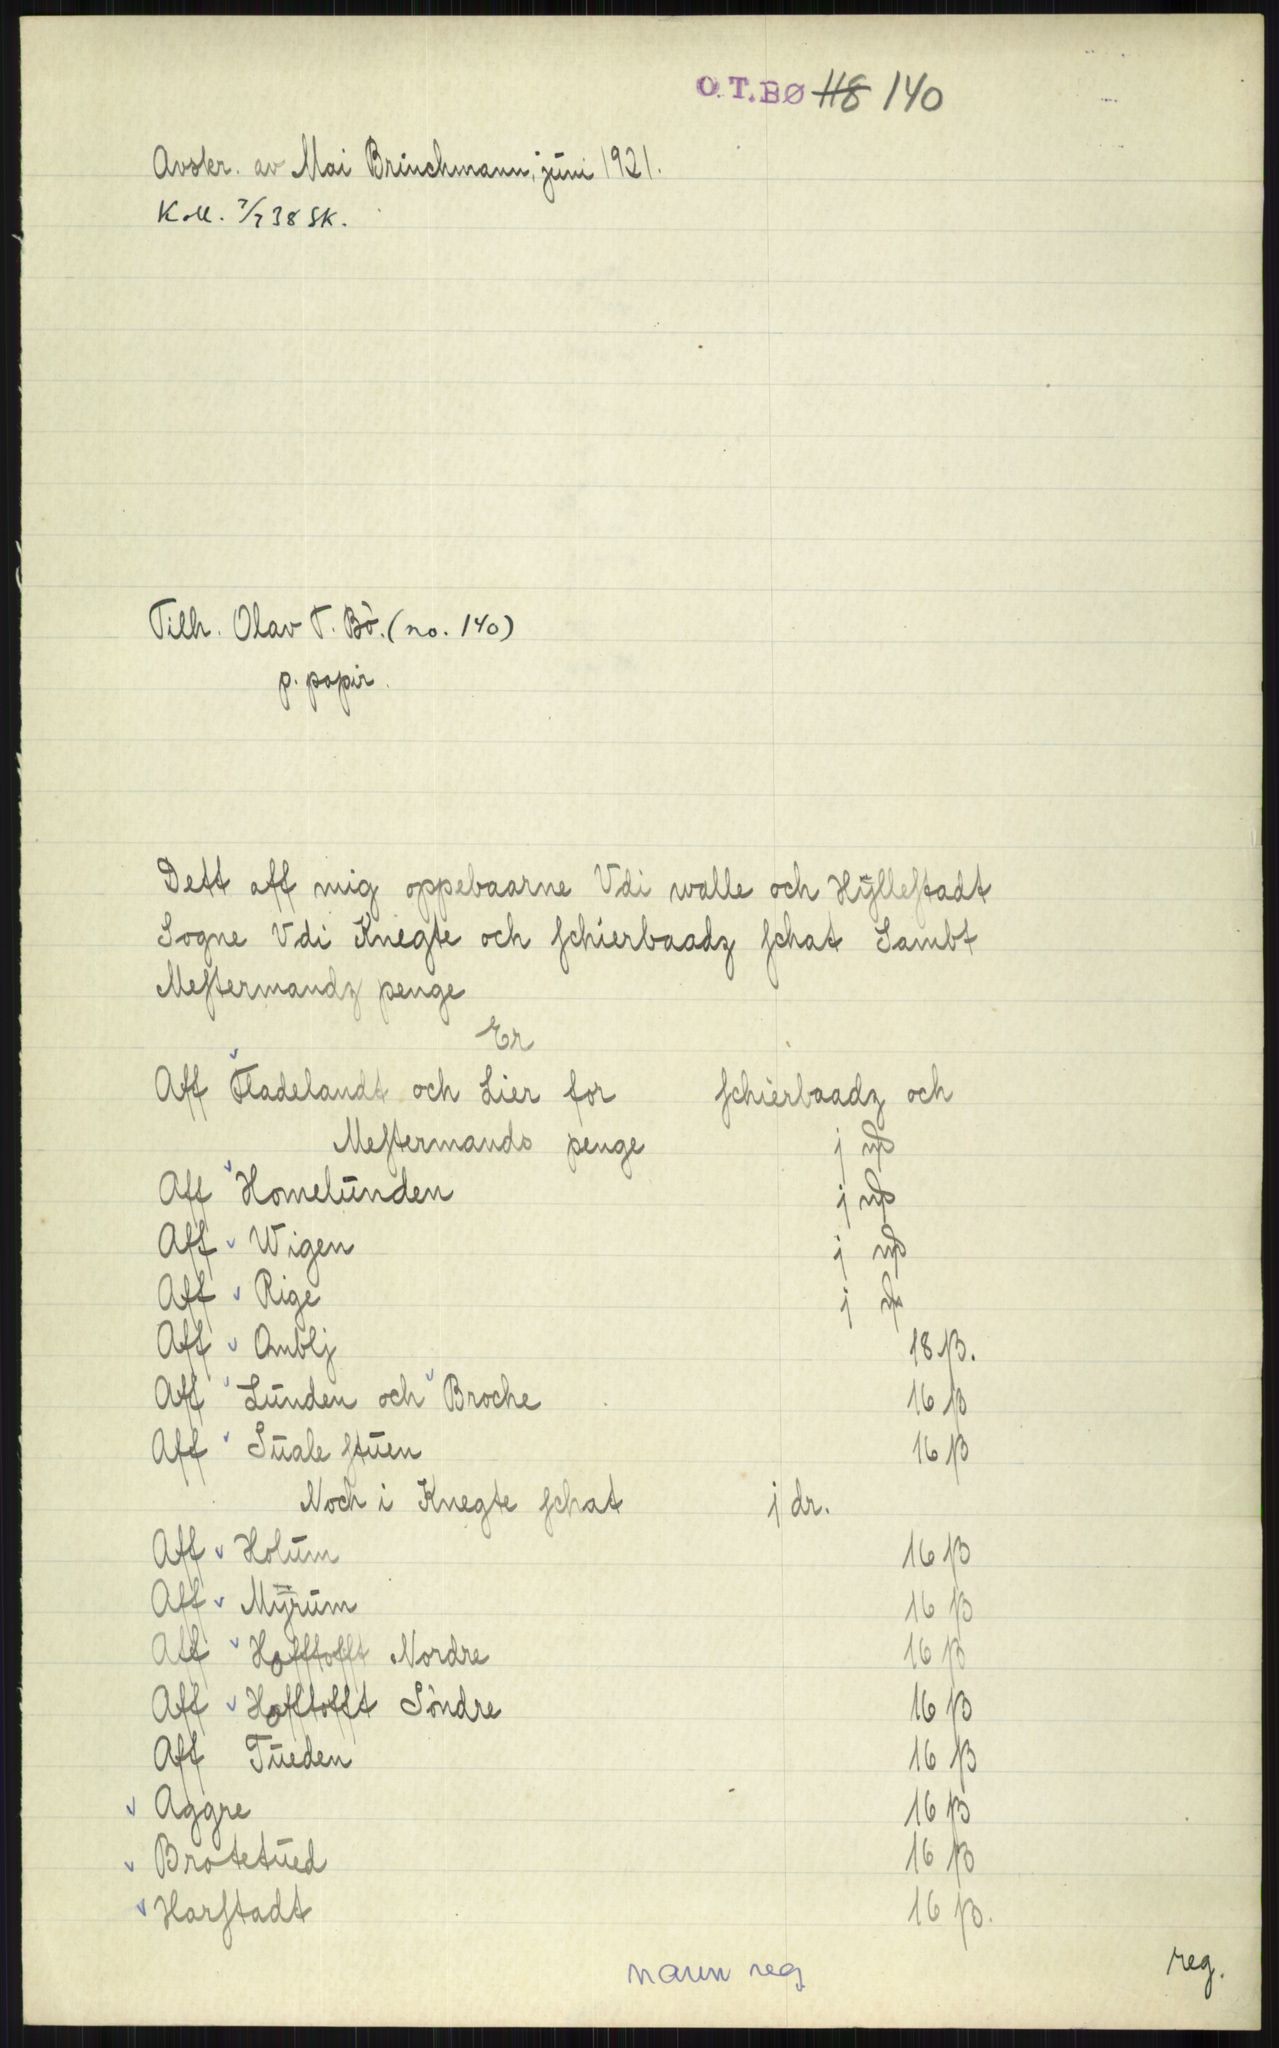 O.T.BØ 118 140
Avskr. av Mai Brinchmann, juni 1921.
Koll. 7/7 38 SK.
Tilh. Olav T. Bø. (no. 140)
p. papir.
Dett aff mig oppebaarne Vdi walle och Hÿlleſtadt
Sogne Vdi Knegte och ſchierbaadz ſchat Sambt
Meſtermandz penge
Er
Aff Fladelandt och Lier for ſchierbaadz och
Meſtermands penge j
Aff Homelunden j
Aff Wigen j
Aff Rige j
Aff Omblj 18 β.
Aff Lunden och Broche 16 β
Aff Suale ſtuen 16 β
Noch i Knegte ſchat j dr.
Aff Holum 16 β
Aff Mÿrum 16 β
Aff Hofftofft Nordre 16 β
Aff Hofftofft Söndre 16 β
Aff Tueden 16 β
Aggre 16 β
Brotetued 16 β
Harſtadt 16 β.
navn reg
reg.